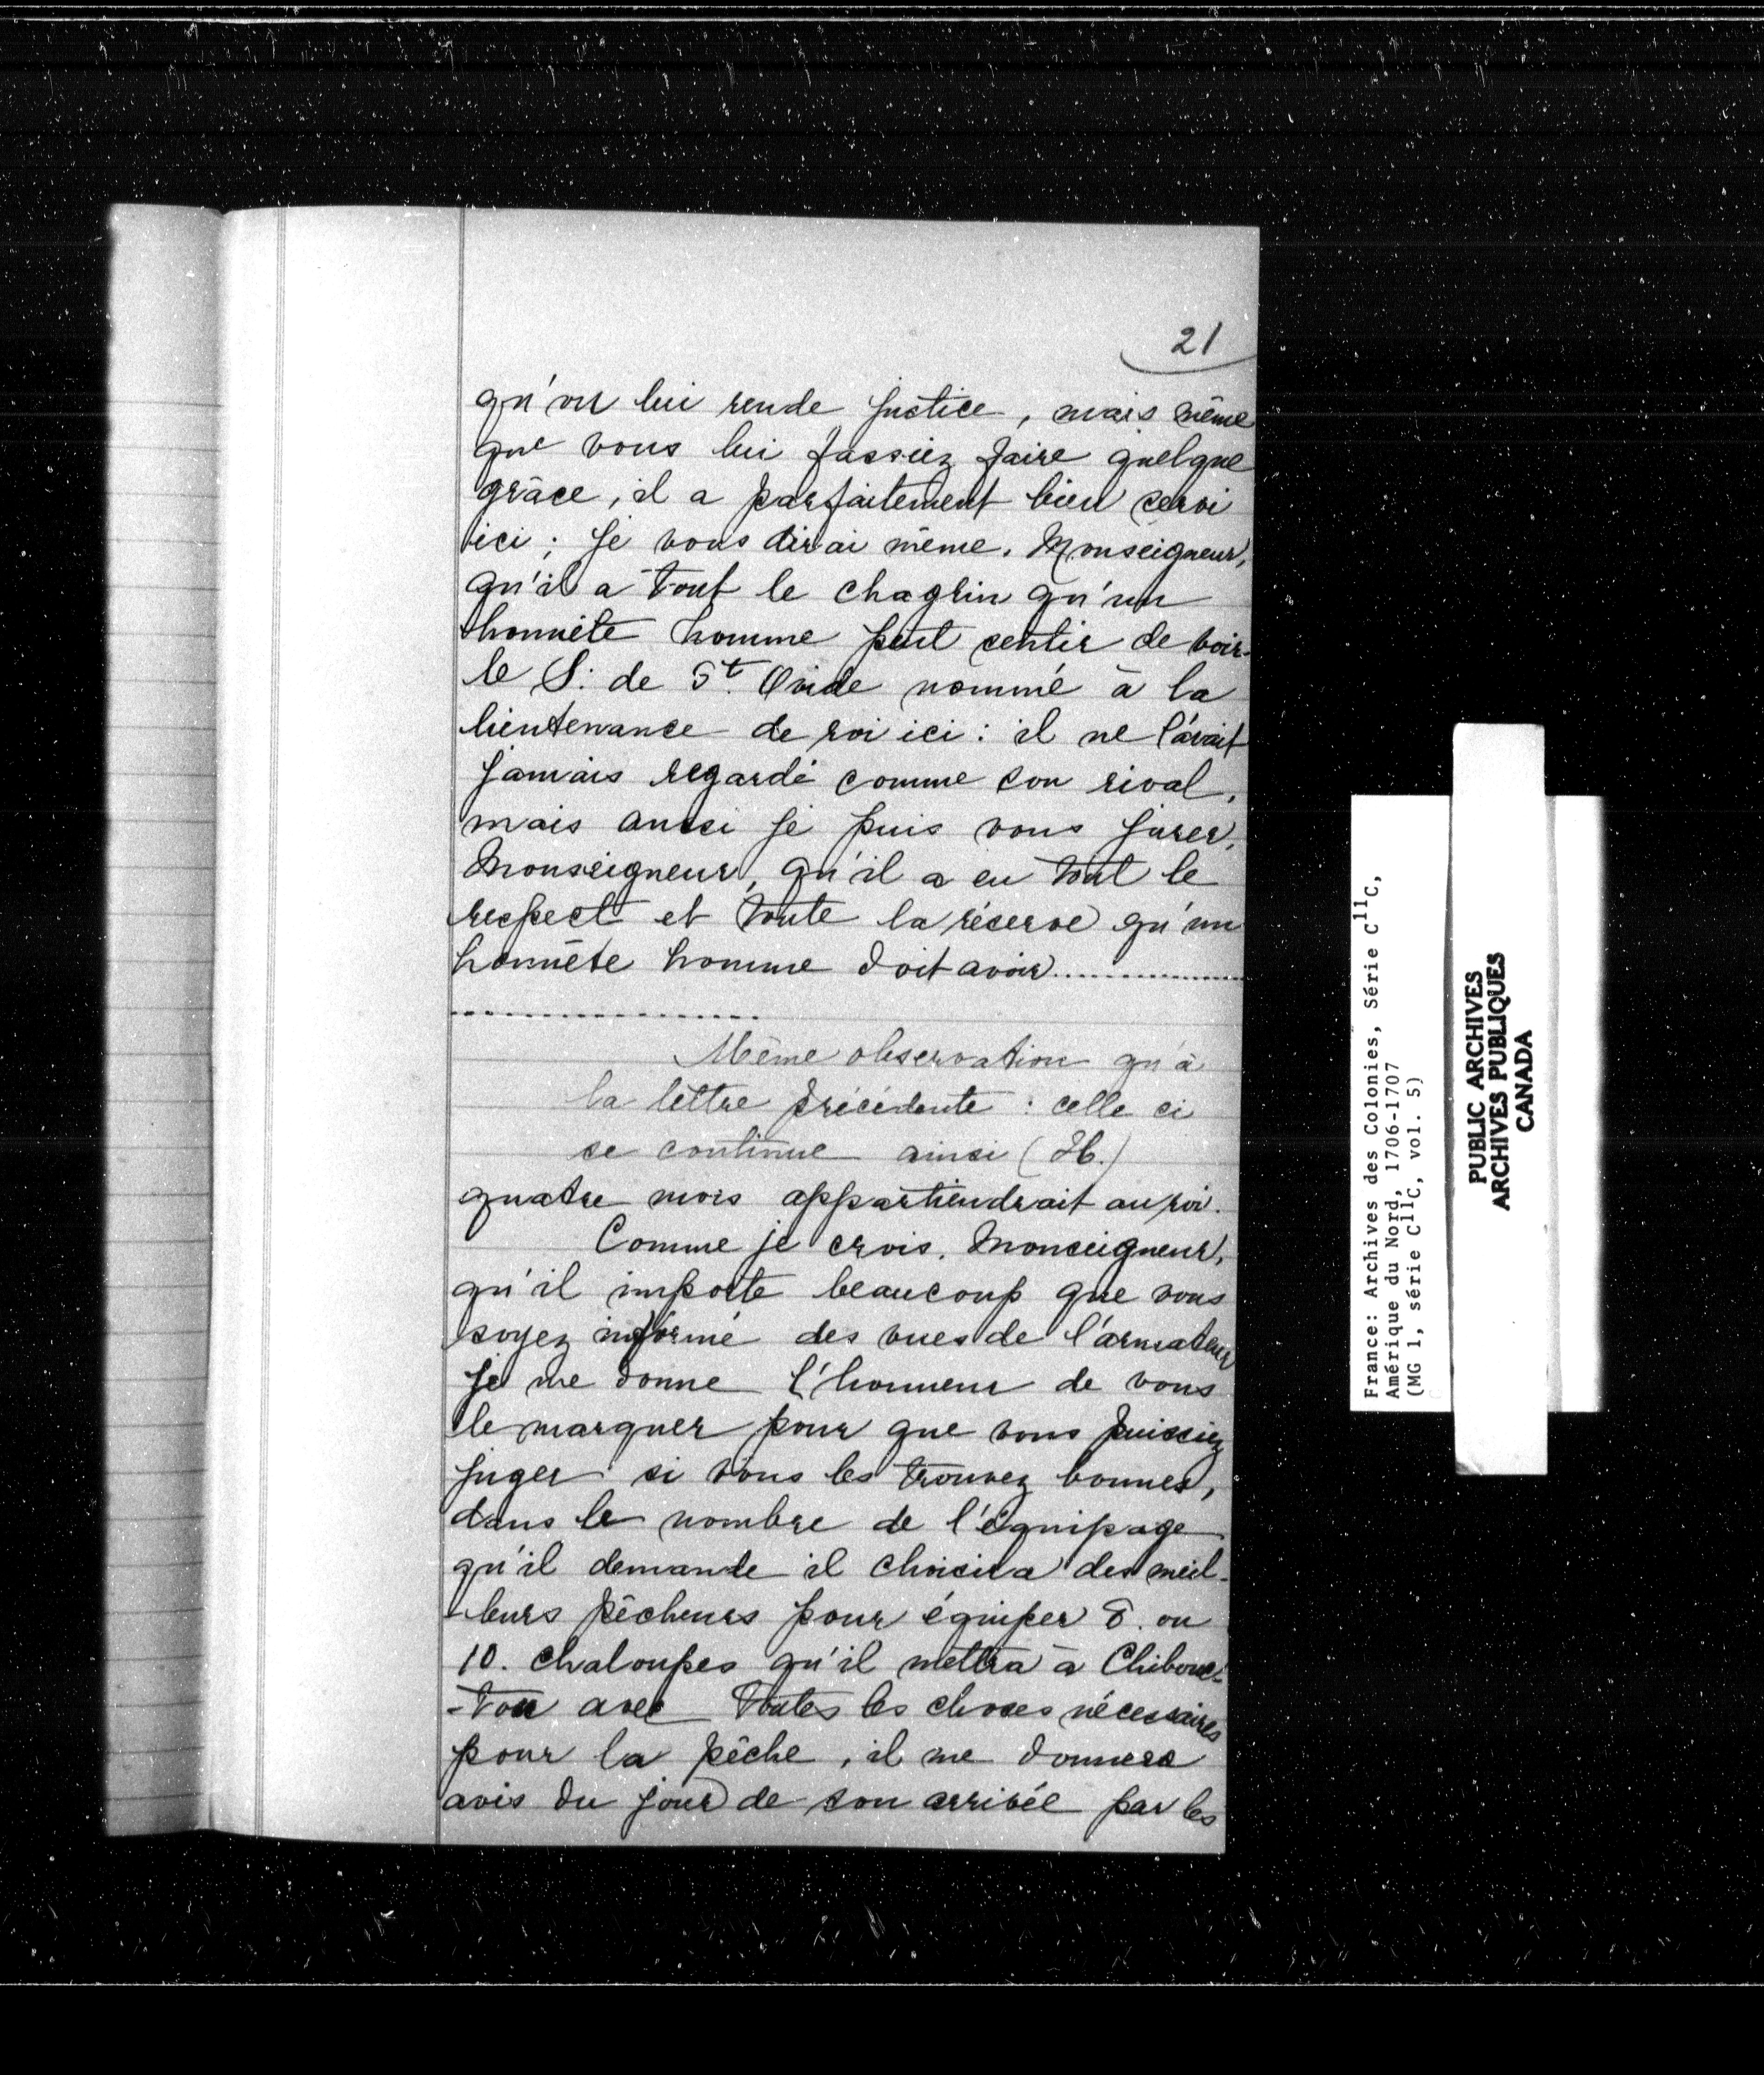 21
qu'on lui rende justice, mais même
que vous lui fassiez faire quelque
grâce, il a parfaitement bien servi
ici ; je vous dirai même, Monseigneur,
qu'il a tout le chagrin qu'un
honnête homme peut sentir de voir
le S. de St. Ovide nommé à la
lieutenance de roi ici : il ne l'avait
jamais regardé comme son rival,
mais aussi je puis vous jurer,
Monseigneur, qu'il a eu tout le
respect et toute la réserve qu'un
honnête homme doit avoir...............
..................
Même observation qu'à
la lettre précédente : celle ci
se continue ainsi (H.)
quatre mois appartiendrait au roi.
Comme je crois, Monseigneur,
qu'il importe beaucoup que vous
soyez informé des vues de l'armateur
je me donne l'honneur de vous
le marquer pour que vous puissiez
juger si vous les trouvez bonnes,
dans le nombre de l'équipage
qu'il demande il choisira des meil-
-leurs pêcheurs pour équiper 8. ou
10. chaloupes qu'il mettra à Chibouc-
-tou avec toutes les choses nécessaires
pour la pêche, il me donnera
avis du jour de son arrivée par les
France: Archives des Colonies, Série C11C,
Amérique du Nord, 1706-1707
(MG 1, série C11C, vol. 5)
PUBLIC ARCHIVES
ARCHIVES PUBLIQUES
CANADA